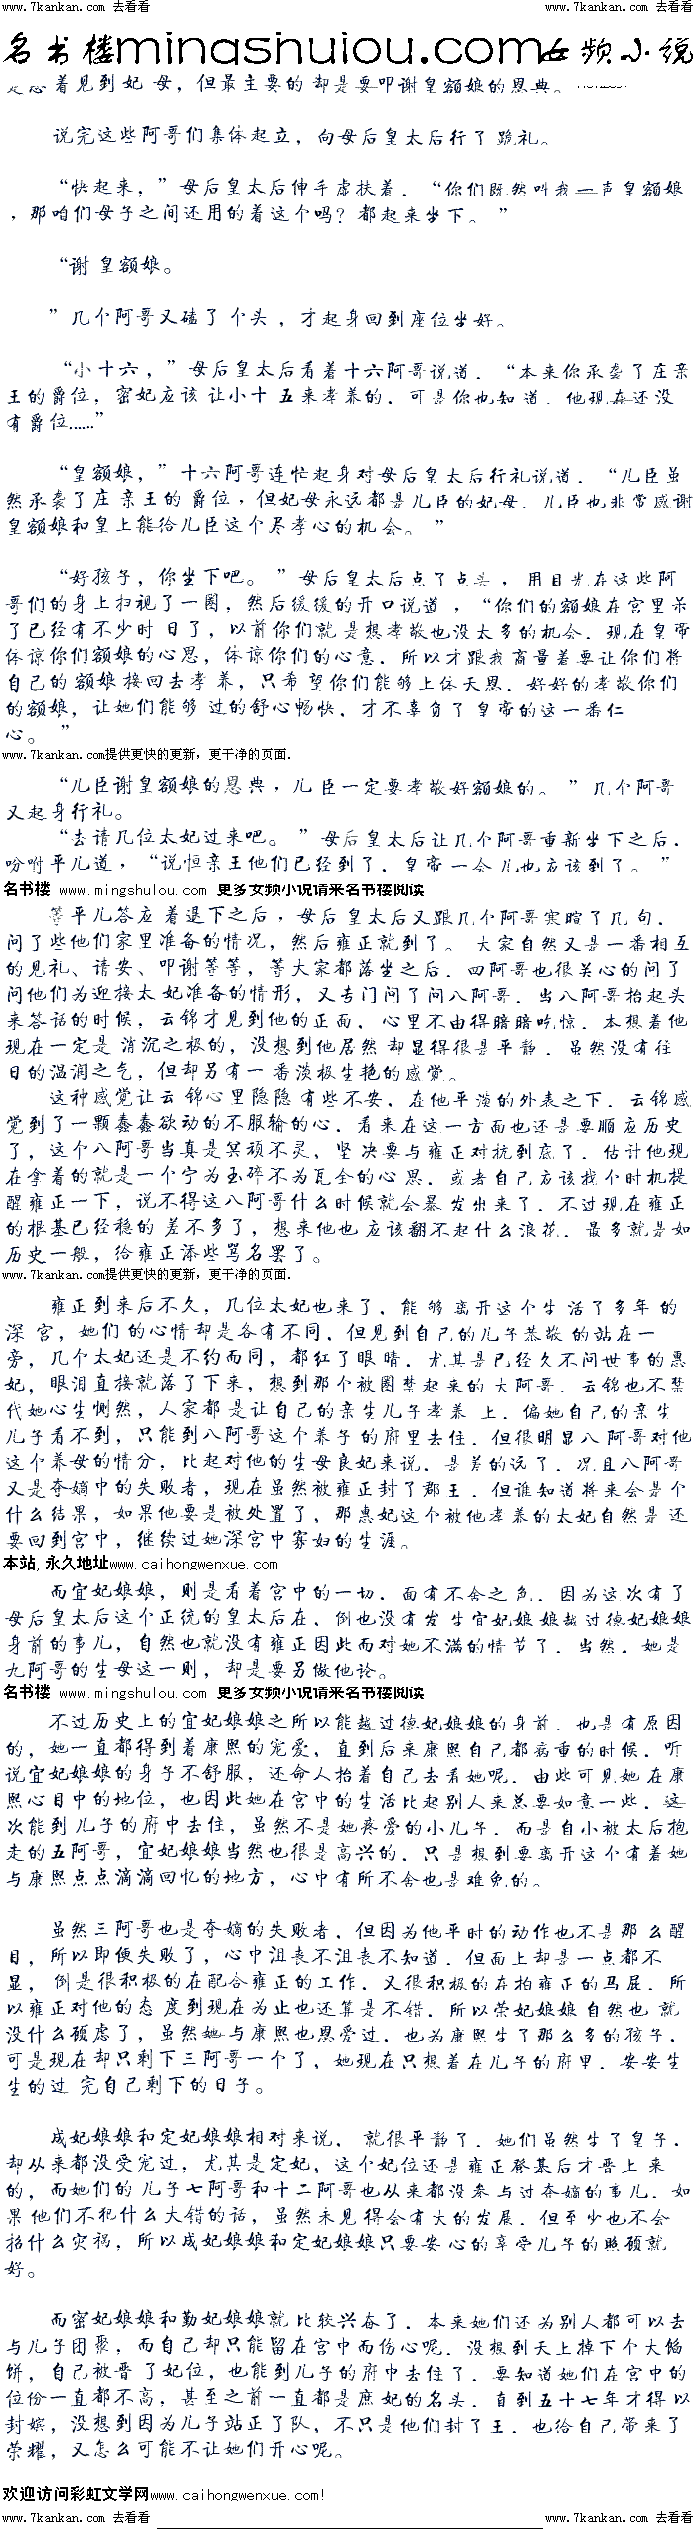 www.7kankan.com 去看看 www.7kankan.com 去看看
名书楼mingshulou.com女频小说
着见到妃 母，但最主要的 却是要叩谢皇额娘的恩典。
说完这些阿哥们集体起立，向母后皇太后行了 跪礼。
“快起来，”母后皇太后伸手虚扶着．“你们既然叫我一声皇额娘
，那咱们母子之间还用的着这个吗？都起来坐下。 ”
“谢 皇额娘。
”几个阿哥又磕了 个头 ，才起身回到座位坐好。
“小十六，”母后皇太后看着十六阿哥说道．“本来你承袭了庄亲
王的爵位，密妃应该 让小十 五来孝养的．可是你也知 道．他现在还没
有爵位……”
“皇额娘，”十六阿哥连忙起身对母后皇太后行礼说道．“儿臣虽
然承袭了庄 亲王的 爵位，但妃母永远都是儿臣的妃母．儿臣也非常感谢
皇额娘和皇上能给儿臣这个尽孝心的机会。 ”
“好孩子，你坐下吧。 ”母后皇太后点了点头 ，用目光在这些阿
哥们的身上扫视了一圈，然后缓缓的开口说道 ，“你们的额娘在宫里呆
了已经有不少时 日了，以前你们就 是想孝敬也没太多的机会．现在皇帝
体谅你们额娘的心思，体谅你们的心意．所以才跟我商量着要让你们将
自己的 额娘 接回去孝 养，只希 望你们能够上体天恩．好好的孝敬你们
的额娘，让她们能够 过的舒心畅快．才不辜负了 皇帝的这一番仁
心。 ”
www.7kankan.com提供更快的更新，更干净的页面．
“儿臣谢皇额娘的恩典，儿 臣一定要孝敬好额娘的。 ”几个阿哥
又起身行礼。
“去请几位太妃过来吧。 ”母后皇太后让几个阿哥重新坐下之后．
吩咐平儿道，“说恒亲王他们已经到了．皇帝一会儿也应该到了。 ”
名书楼 www.mingshulou.com 更多女频小说请来名书楼阅读
等平儿答应 着退下之后，母后 皇太后又跟几个阿哥寒暄了几 句．
问了些他们家里准备的情况，然后雍正就到了。 大家自然又是一番相互
的见礼、请安、叩谢等等，等大家都落坐之后．四阿哥也很关心的问了
问他们为迎接太 妃准备的情形，又专门问了问八阿哥．当八阿哥抬起头
来答话的时候，云锦才见到他的正面．心里不由得暗暗吃惊．本想着他
现在一定是 消沉之极的，没想到他居然 却显得很是平静．虽然没有往
日的温润之气，但却另有一 番淡极生艳的感觉。
这种感觉让云 锦心里隐隐 有些不安．在他平淡的外表之下．云锦感
觉到了一颗蠢蠢欲动的不服输的心．看来在这一方面也还是要顺应历史
了，这个八阿哥当真是冥顽不灵，坚 决要与雍正对抗到底了．估计他现
在拿着的就是一个宁为玉碎不为瓦全的心 思．或者自己应该找个时机提
醒雍正一下，说不得这八阿哥什么时候就会暴 发出来了．不过现在雍正
的根基已经稳的 差不多了，想来他也 应该翻不起什么浪花．最多就是如
历史一般，给雍正添些骂名罢了。
www.7kankan.com提供更快的更新，更干净的页面．
雍正到来后不久，几位太妃也来了．能 够 离开这个生 活了多年 的
深 宫，她们 的心情却是各有不同．但见到自己的儿子恭敬 的站在一
旁，几个太妃还是不约而同，都红了眼 睛．尤其是已经久不问世事的惠
妃，眼泪直接就落了下来，想到那个被圈禁起来的大阿哥．云锦也不禁
代她心生恻然，人家都 是让自己的亲生儿子孝养 上．偏她自己的亲生
儿子看不到，只能到八阿哥这个养子 的府里去住．但很明显八 阿哥对他
这个养母的情分，比起对他的生母良妃来说．是差的远了．况且八阿哥
又是夺嫡中的失败者，现在虽然被雍正封了郡王．但谁知道将来会是个
什么结果，如果他要是被处置了．那惠妃这个被他孝养的太妃自然是 还
要回到宫中，继续过她深宫中寡妇的生涯。
本站,永久地址www.caihongwenxue.com
而宜妃娘娘，则是看着宫中的一切．面有不舍之色．因为这次有了
母后皇太后这个正统的皇太后在．倒也没有发 生宜妃娘娘越过德妃娘娘
身前的事儿，自然也就没有雍正因此而对她不满的情节了．当然．她是
九阿哥的生母这一则，却是要另做他论。
名书楼 www.mingshulou.com 更多女频小说请来名书楼阅读
不过历史上的宜妃娘娘之所以能越过德妃娘娘的身前．也是有原因
的，她一直都得到着康熙的宠爱，直到后来康熙自己都病重的时候．听
说宜妃娘娘的身子不舒服，还命人抬着自己去看她呢．由些可见她在康
熙心目中的地位，也因此她在宫中的生活比起别人来总要如意一些．这
次能到儿子的府中去住，虽然不是她疼爱的小儿子．而是自小被太后抱
走的五阿哥，宜妃娘娘当然也很是高兴的．只是想到要离开这个有着她
与康熙点点滴滴回忆的地方，心中有所不舍也是难免的。
虽然三阿哥也是夺嫡的失败者．但因为他平时的动作也不是那 么醒
目，所以即便失败了，心中沮丧不沮丧不知道．但面上却是一点都不
显， 倒是很积极的在配合雍正的工作．又很积极的在拍雍正的马屁．所
以雍正对他的态 度到现在为止也还算是不错．所以荣妃娘娘 自然也 就
没什么顾虑了，虽然她 与康熙也恩爱过．也为康熙生了那么多的孩子．
可是现在却只剩下三阿哥一个了．她现在只想着在儿子的府里．安安生
生的过 完自己剩下的日子。
成妃娘娘和定妃娘娘相对来说， 就很平静了．她们虽然生了皇子．
却从来都没受宠过，尤其是定妃．这个妃位还是雍正登基后才晋上 来
的，而她们的儿子七阿哥和十二阿哥也从来都没参与过夺嫡的事儿．如
果他们不犯什么大错的话，虽然未见 得会有大的发展．但至少也不会
招什么灾祸，所以成妃娘娘和定妃娘娘只要安 心的享受儿子的照顾就
好。
而密妃娘娘和勤妃娘娘就 比较兴奋了．本来她们还为别人都可以去
与儿子团聚，而自己却只能留在宫中而伤心呢．没想到天上掉下个大馅
饼，自己被晋 了妃位，也能到儿子的府中去住了．要知道她们在宫中的
位份一直都不高，甚至之前一直都是庶妃的名头．直到五十七年才得以
封嫔，没想到因为儿子站正了队．不只是他们封了王．也给自己带来了
荣耀，又怎么可能不让她们开心呢。
欢迎访问彩虹文学网www.caihongwenxue.com!
www.7kankan.com 去看看 www.7kankan.com 去看看